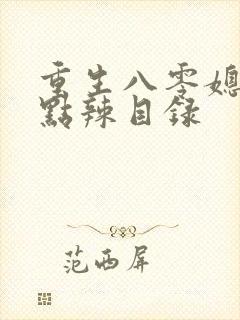 重生八零媳
點辣目録
范西屏